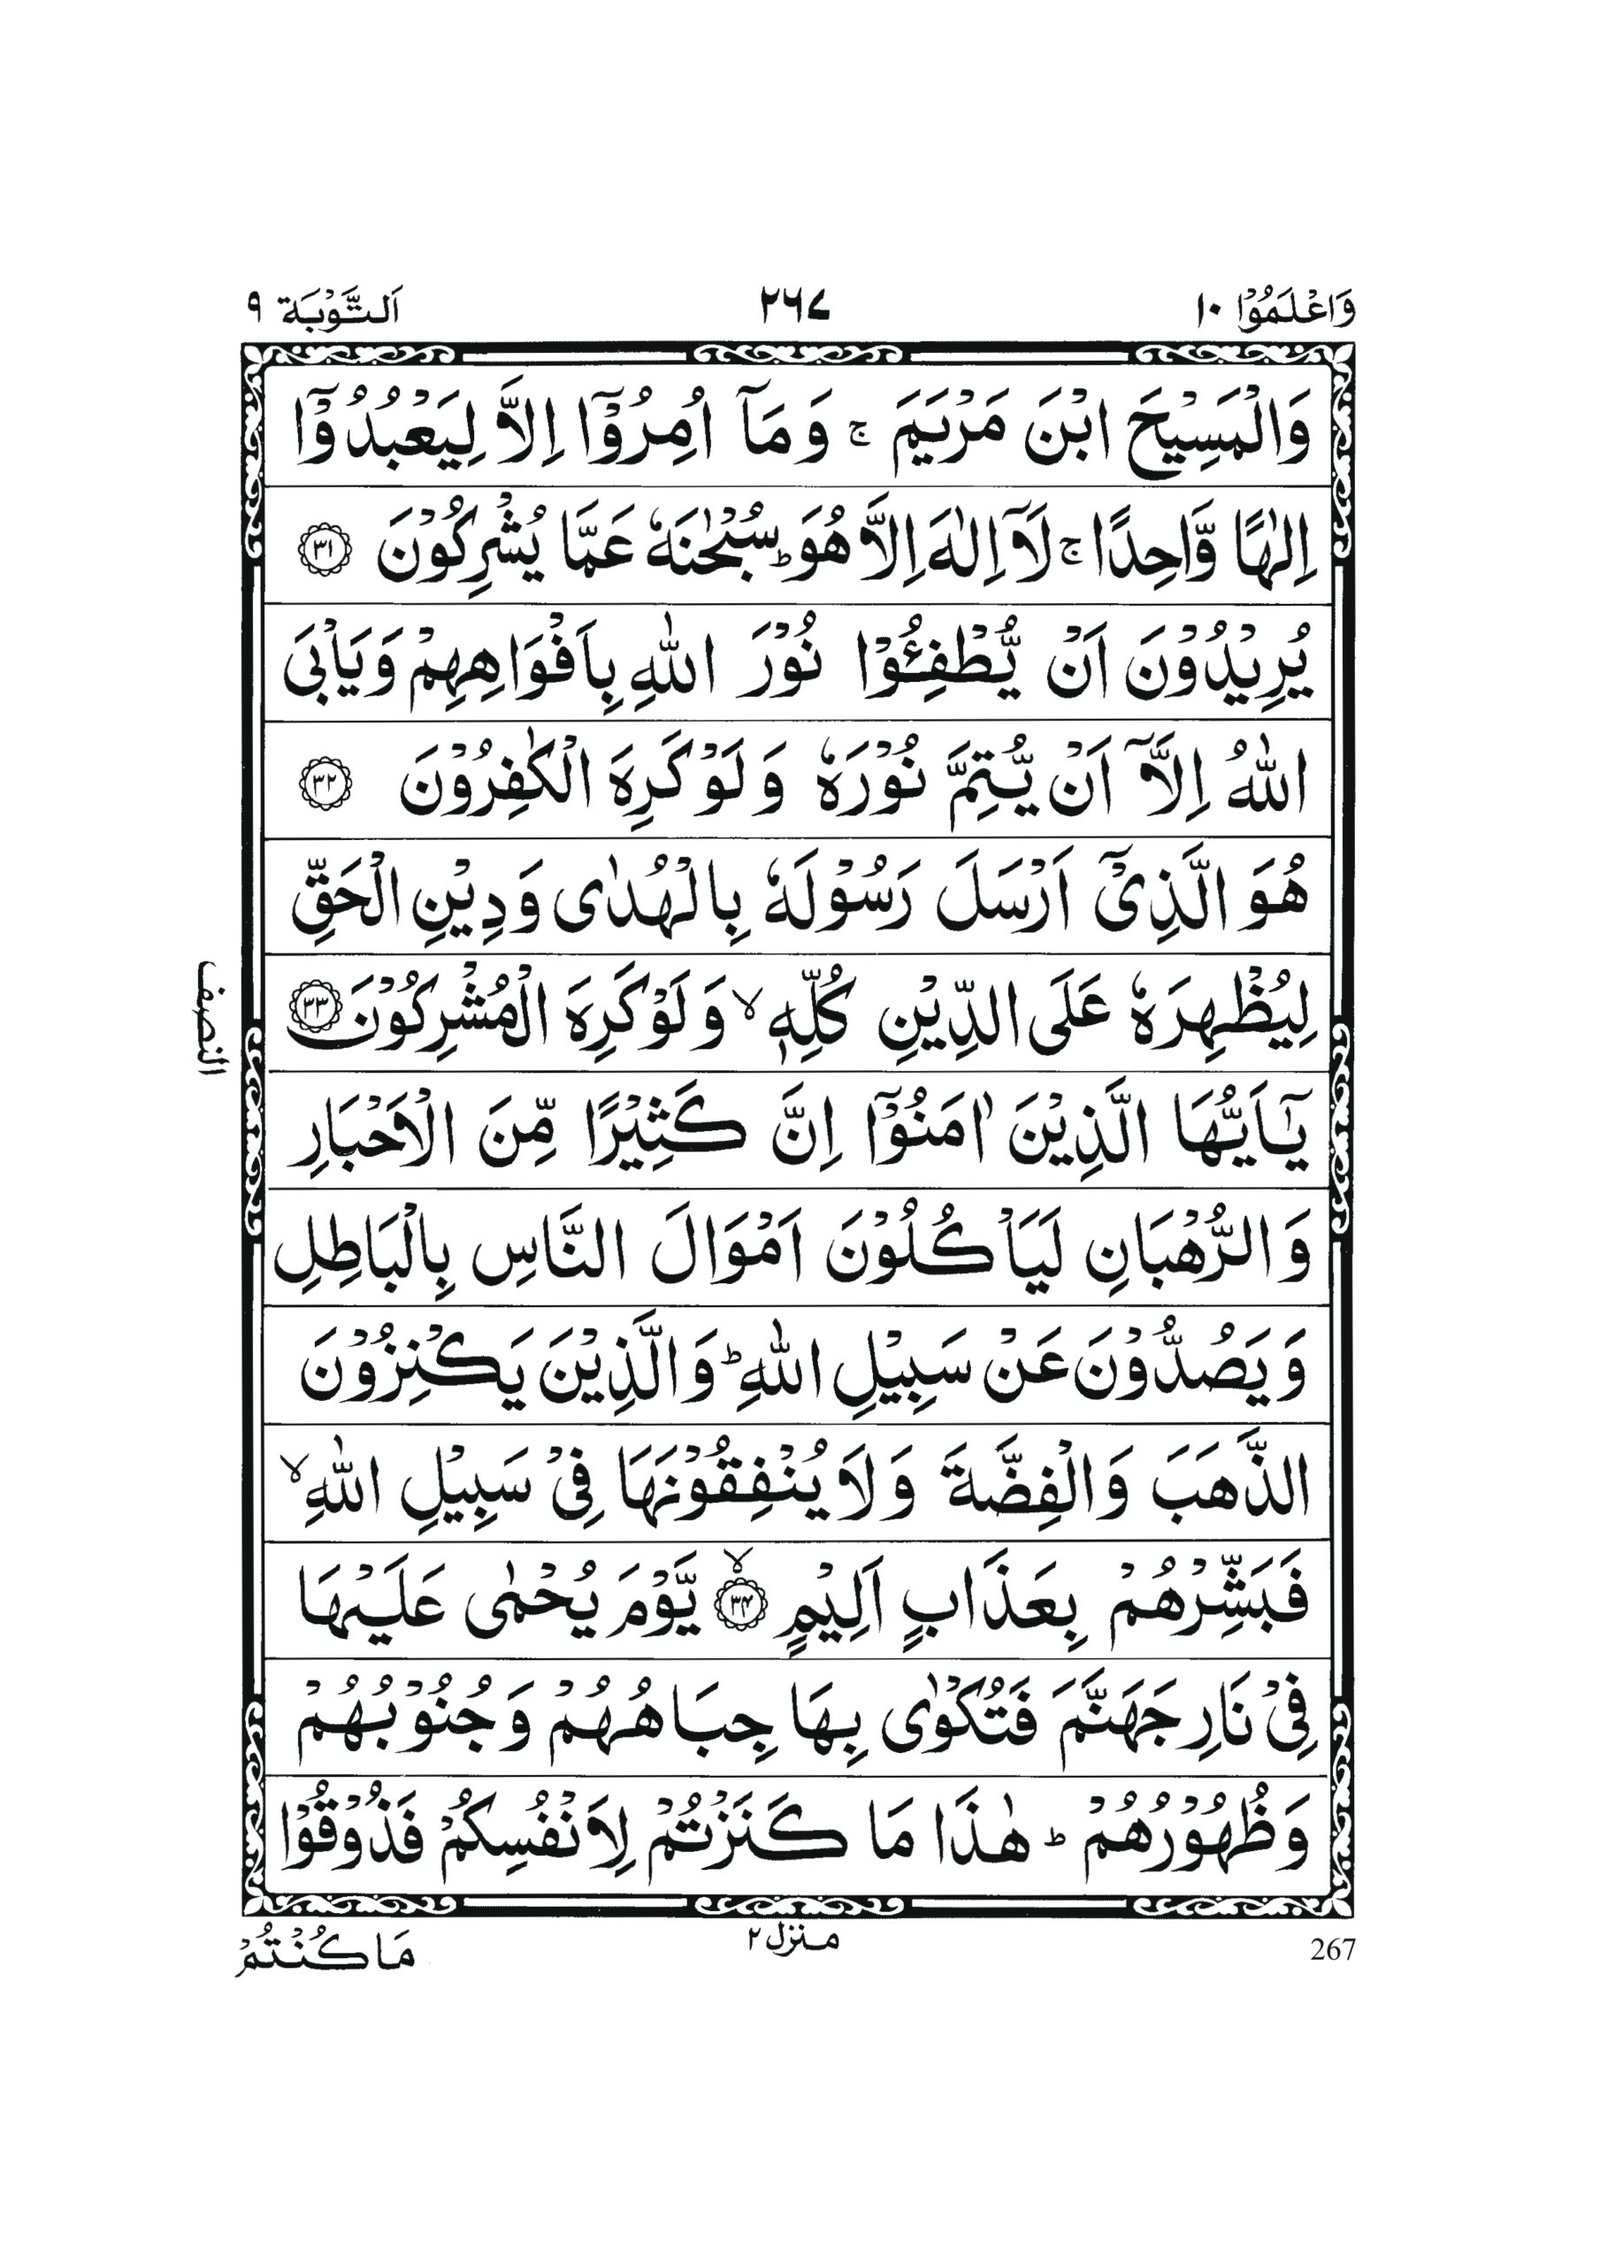 وَاعْلَمُوْۤا ١٠
٢٦٧
اَلتَّوْبَة ٩
وَالْمَسِيْحَ ابْنَ مَرْيَمَ ۚ وَمَاۤ اُمِرُوْۤا اِلَّا لِيَعْبُدُوْۤا
اِلٰهًا وَّاحِدًا ۚ لَاۤ اِلٰهَ اِلَّا هُوَ ؕ سُبْحٰنَهٗ عَمَّا يُشْرِكُوْنَ ﴿٣١﴾
يُرِيْدُوْنَ اَنْ يُّطْفِـُٔوْا نُوْرَ اللّٰهِ بِاَفْوَاهِهِمْ وَيَاْبَى
اللّٰهُ اِلَّاۤ اَنْ يُّتِمَّ نُوْرَهٗ وَلَوْ كَرِهَ الْكٰفِرُوْنَ ﴿٣٢﴾
هُوَ الَّذِىْۤ اَرْسَلَ رَسُوْلَهٗ بِالْهُدٰى وَدِيْنِ الْحَقِّ
لِيُظْهِرَهٗ عَلَى الدِّيْنِ كُلِّهٖ ۙ وَلَوْ كَرِهَ الْمُشْرِكُوْنَ ﴿٣٣﴾
النصف
يٰۤاَيُّهَا الَّذِيْنَ اٰمَنُوْۤا اِنَّ كَثِيْرًا مِّنَ الْاَحْبَارِ
وَالرُّهْبَانِ لَيَاْكُلُوْنَ اَمْوَالَ النَّاسِ بِالْبَاطِلِ
وَيَصُدُّوْنَ عَنْ سَبِيْلِ اللّٰهِ ؕ وَالَّذِيْنَ يَكْنِزُوْنَ
الذَّهَبَ وَالْفِضَّةَ وَلَا يُنْفِقُوْنَهَا فِىْ سَبِيْلِ اللّٰهِ ۙ
فَبَشِّرْهُمْ بِعَذَابٍ اَلِيْمٍ ﴿٣٤﴾ ۙ يَّوْمَ يُحْمٰى عَلَيْهَا
فِىْ نَارِ جَهَنَّمَ فَتُكْوٰى بِهَا جِبَاهُهُمْ وَجُنُوْبُهُمْ
وَظُهُوْرُهُمْ ؕ هٰذَا مَا كَنَزْتُمْ لِاَنْفُسِكُمْ فَذُوْقُوْا
267
منزل ٢
مَا كُنْتُمْ